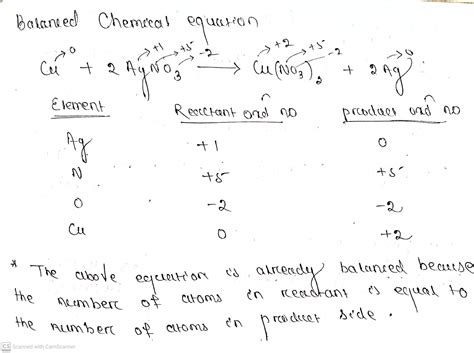 Balanced Chemical equation
0 +1 +5 -2 +2 +5 -2 0
Cu + 2 AgNO3 → Cu(NO3)2 + 2Ag
Element Reactant oxd no product oxd no
Ag +1 0
N +5 +5
O -2 -2
Cu 0 +2
* The above equation is already balanced because
the number of atoms in reactant is equal to
the number of atoms in product side.
CS Scanned with CamScanner